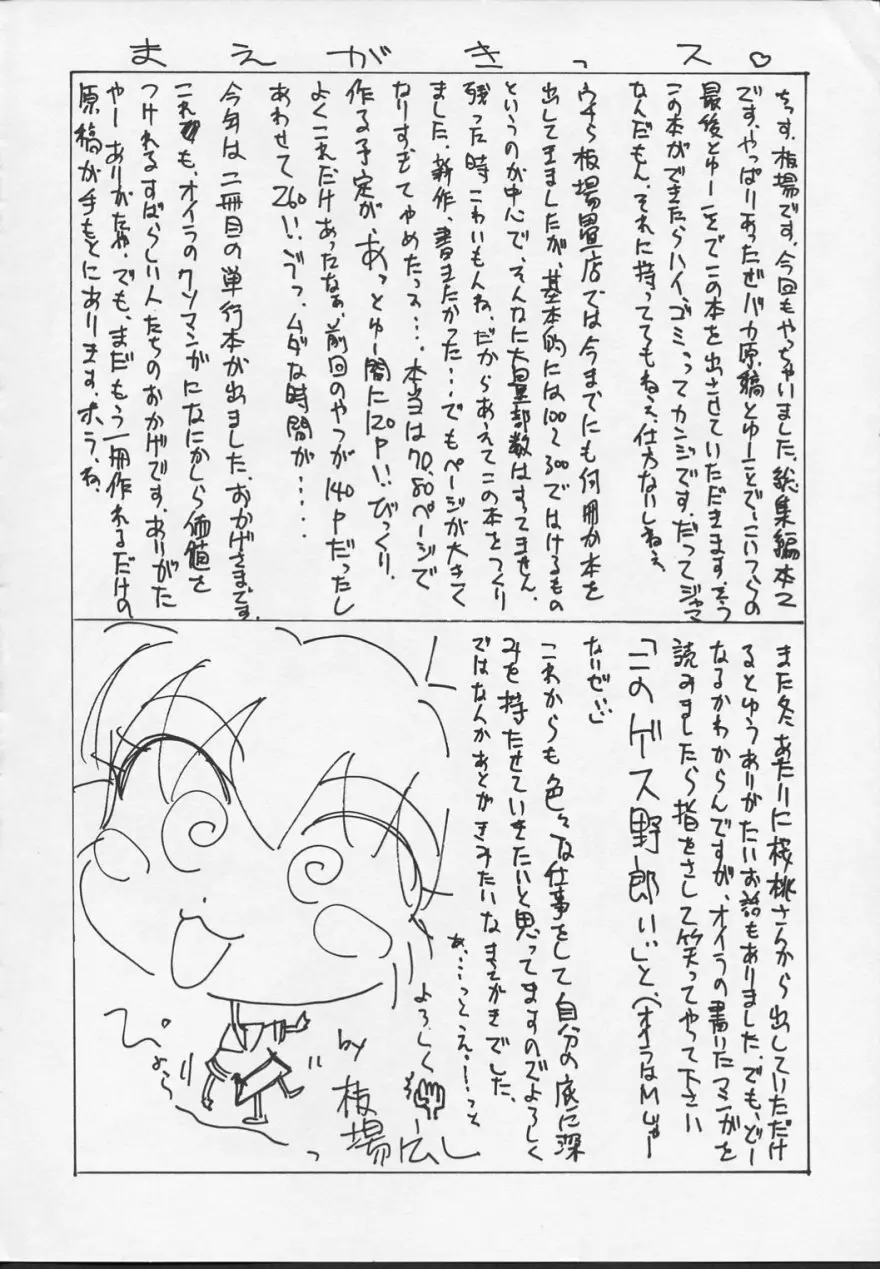 まえがきっス♡
ちっす、板場です。今回もやっちゃいました、総集編本って
です、やっぱりあったぜバカ原稿とゆーことで、こいつらの
最後とゆーことでこの本を出させていただきます。そう
この本ができたらハイ、ゴミってカンジです。だってジャマ
なんだもん。それに持っててもねぇ、仕方ないしねぇ
うちら板場畳店では今までにも何冊か本を
出してきましたが、基本的には100〜300ではけるもの
というのが中心で、そんなに大量部数はすってません。
残った時こわいもんね。だからあえてこの本をつくり
ました。新作、書きたかった…でもページが大きく
なりすぎてやめたっス…。本当は70、80ページで
作る予定が、あっとゆー間に120P!!びっくり。
よくこれだけあったなぁ、前回のやつが140Pだったし
あわせて260!!ゲゲっ、ムダな時間が・・・・・
今年は二冊目の単行本が出ました。おかげさまです。
これでも、オイラのクソマンガになにかしら価値を
つけれるすばらしい人たちのおかげです。ありがた
やーありがたや。でも、まだもう一冊作れるだけの
原稿が手もとにあります。ホラ、ね。
また冬あたりに桜桃さんから出していただけ
るとゆうありがたいお話もありました。でも、どー
なるかわからんですが、オイラの書いたマンガを
読みましたら指をさして笑ってやって下さい
「このゲス野郎!!」と(オイラはMじゃー
ないぜい)
これからも色々な仕事をして自分の底に深
みを持たせていきたいと思ってますのでよろしく
ではなんかあとがきみたいなまえがきでした。
あ、…っとえ、ー、っと
よろしく
by 板場広し
っ
ぴょん